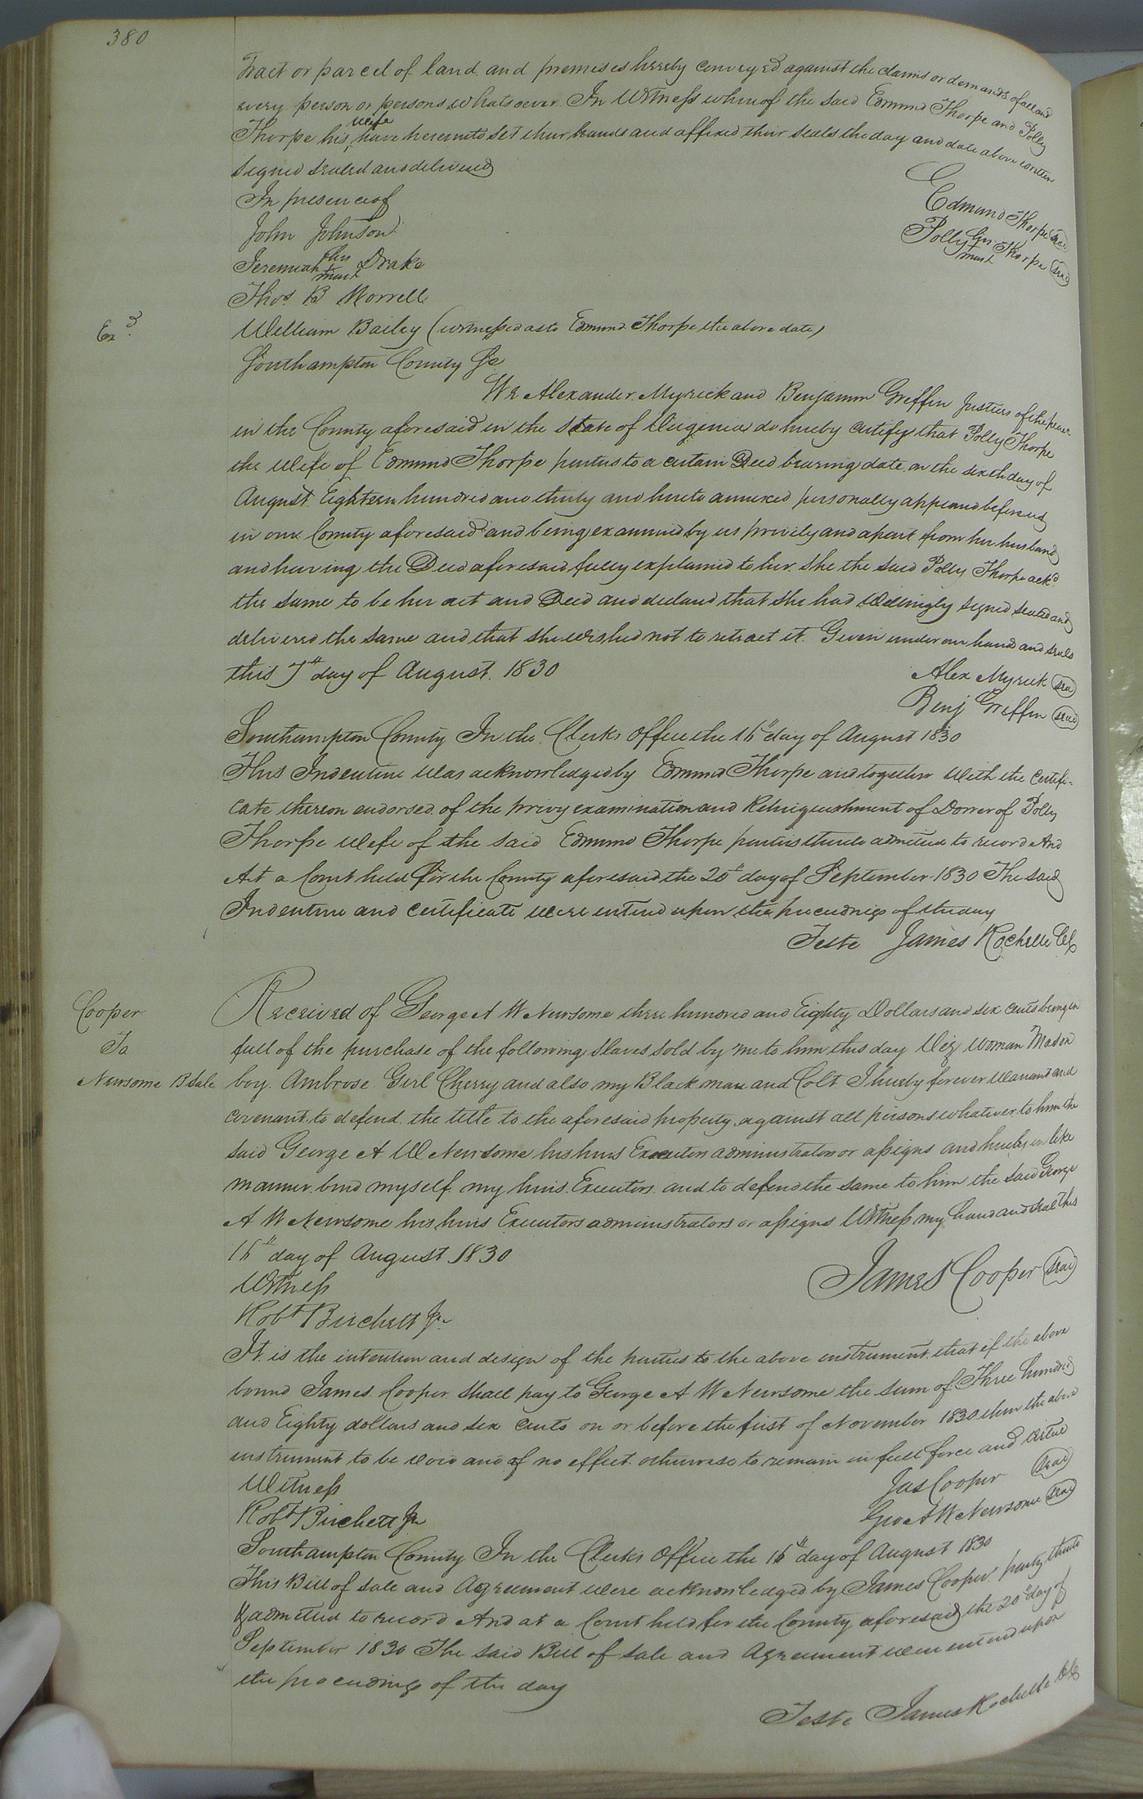 380
Tract or parcel of land and premises hereby conveyed against the claims or demands of all and
every person or persons whatsoever. In Witness whereof the said Edmund Thorpe and Polly
Thorpe his wife have hereunto set their hands and affixed their seals the day and date above written
Signed sealed and delivered
In presence of
Edmund Thorpe (seal)
John Johnson
Polly her mark Thorpe (seal)
Jeremiah his mark Drake
Thos B Morrell
Exd
William Bailey (witnessed as to Edmund Thorpe the above date)
Southampton County Sc
We Alexander Myrick and Benjamin Griffin Justices of the peace
in the County aforesaid in the State of Virginia do hereby certify that Polly Thorpe
the Wife of Edmund Thorpe parties to a certain Deed bearing date on the sixth day of
August Eighteen hundred and thirty and hereto annexed personally appeared before us
in our County aforesaid and being examined by us privily and apart from her husband
and having the Deed aforesaid fully explained to her She the said Polly Thorpe ackd
the same to be her act and Deed and declared that she had Willingly signed sealed and
delivered the same and that she wished not to retract it. Given under our hand and seals
this 7th day of August. 1830
Alex Myrick (seal)
Benj Griffin (seal)
Southampton County In the Clerks Office the 16th day of August 1830
This Indenture was acknowledged by Edmund Thorpe and together With the certifi-
cate thereon endorsed of the privy examination and Relinquishment of Dower of Polly
Thorpe Wife of the said Edmund Thorpe parties thereto admitted to record And
At a Court held for the County aforesaid the 20th day of September 1830 The said
Indenture and Certificate were entered upon the proceedings of the day
Teste James Rochelle Clk
Cooper
To
Newsome B Sale
Received of George A W Newsome three hundred and Eighty Dollars and six cents being in
full of the purchase of the following slaves sold by me to him this day Viz woman Mason
boy. Ambrose Girl Cherry and also my Black mare and Colt I hereby forever Warrant and
covenant to defend the title to the aforesaid property against all persons whatever to him the
said George A W Newsome his heirs Executors administrators or assigns and hereby in like
manner bind myself my heirs Executors and to defend the same to him the said George
A W Newsome his heirs Executors administrators or assigns Witness my hand and seal this
16th day of August 1830
James Cooper (seal)
Witness
Robt Birchett Jr
It is the intention and design of the parties to the above instrument, that if the above
bound James Cooper shall pay to George A W Newsome the sum of Three hundred
and Eighty dollars and six cents on or before the first of November 1830 then the above
instrument to be void and of no effect otherwise to remain in full force and virtue
Witness
Jas Cooper (seal)
Robt Birchett Jr
Geo A W Newsome (seal)
Southampton County In the Clerks Office the 16th day of August 1830
This Bill of Sale and Agreement were acknowledged by James Cooper party thereto
& admitted to record And at a Court held for the County aforesaid the 20th day of
September 1830 The said Bill of sale and Agreement were entered upon
the proceedings of the day
Teste James Rochelle Clk